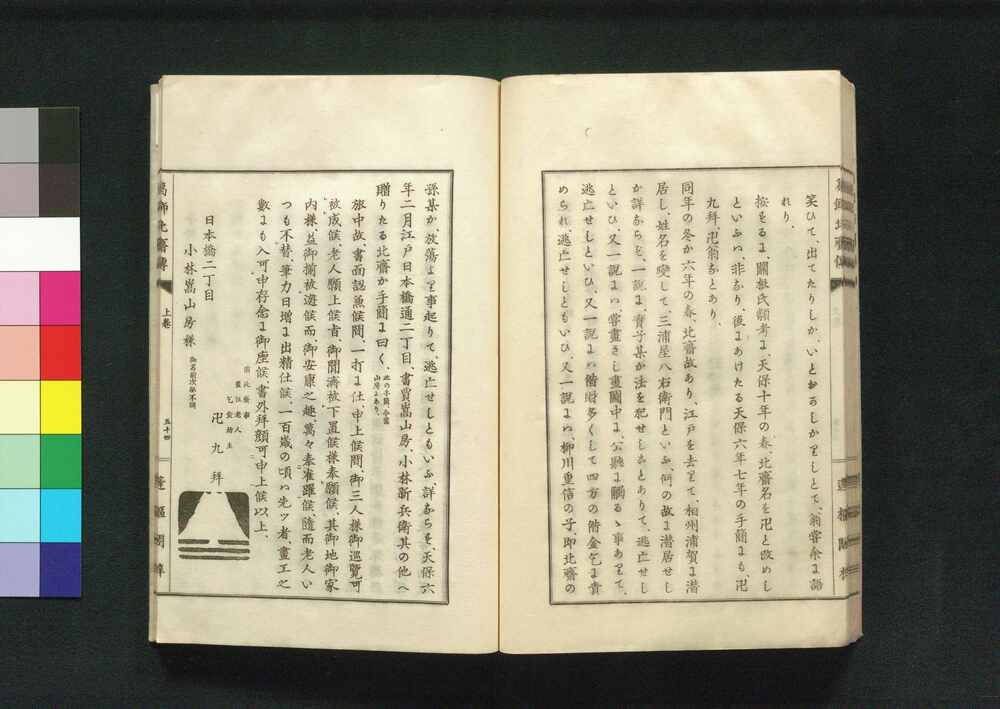 笑ひて、出てたりしか、いとおろしかりしとて、翁嘗余に語
れり、
按をるに、關根氏類考に、天保十年の春、北齋名を卍と改めし
といふハ、非なり、後にあけたる天保六年七年の手簡にも、卍
九拜、卍翁などあり、
同年の冬か六年の春、北齋故あり、江戸を去りて、相州浦賀に潜
居し、姓名を變して、三浦屋八右衛門といふ、何の故に潜居せし
か詳ならす、一説に、實子某か法を犯せしことありて、逃亡せし
といひ、又一説にハ、嘗畫きし畫圖中に、公聽に觸るゝ事ありて、
逃亡せしといひ、又一説にハ借財多くして四方の借金乞に責
められ、逃亡せしともいひ、又一説にハ、柳川重信の子、即北齋の
葛飾北齋傳
上卷
五十四
蓬樞閣梓
孫某か、放蕩より事起りて、逃亡せしともいふ、詳ならす、天保六
年二月江戸日本橋通二丁目、書賈嵩山房、小林新兵衛其の他へ
贈りたる北齋か手簡に曰く、此の手簡、今嵩山房にあり、
旅中故、書面認兼候間、一打に仕申上候間、御三人樣御巡覽可
被成候、老人願上候者、御聞濟被下置候樣奉願候、其御地御家
内樣、益御揃被遊候而、御安康之趣萬々奉雀躍候、隨而老人い
つも不替、筆力日増に出精仕候、一百歳の頃ハ先ツ者、畫工之
數にも入可申存念に御座候、書外拜顔可申上候、以上、
前北齋事
畫狂老人
乞食坊主
卍九拜
日本橋二丁目
小林嵩山房樣
御名前次第不同